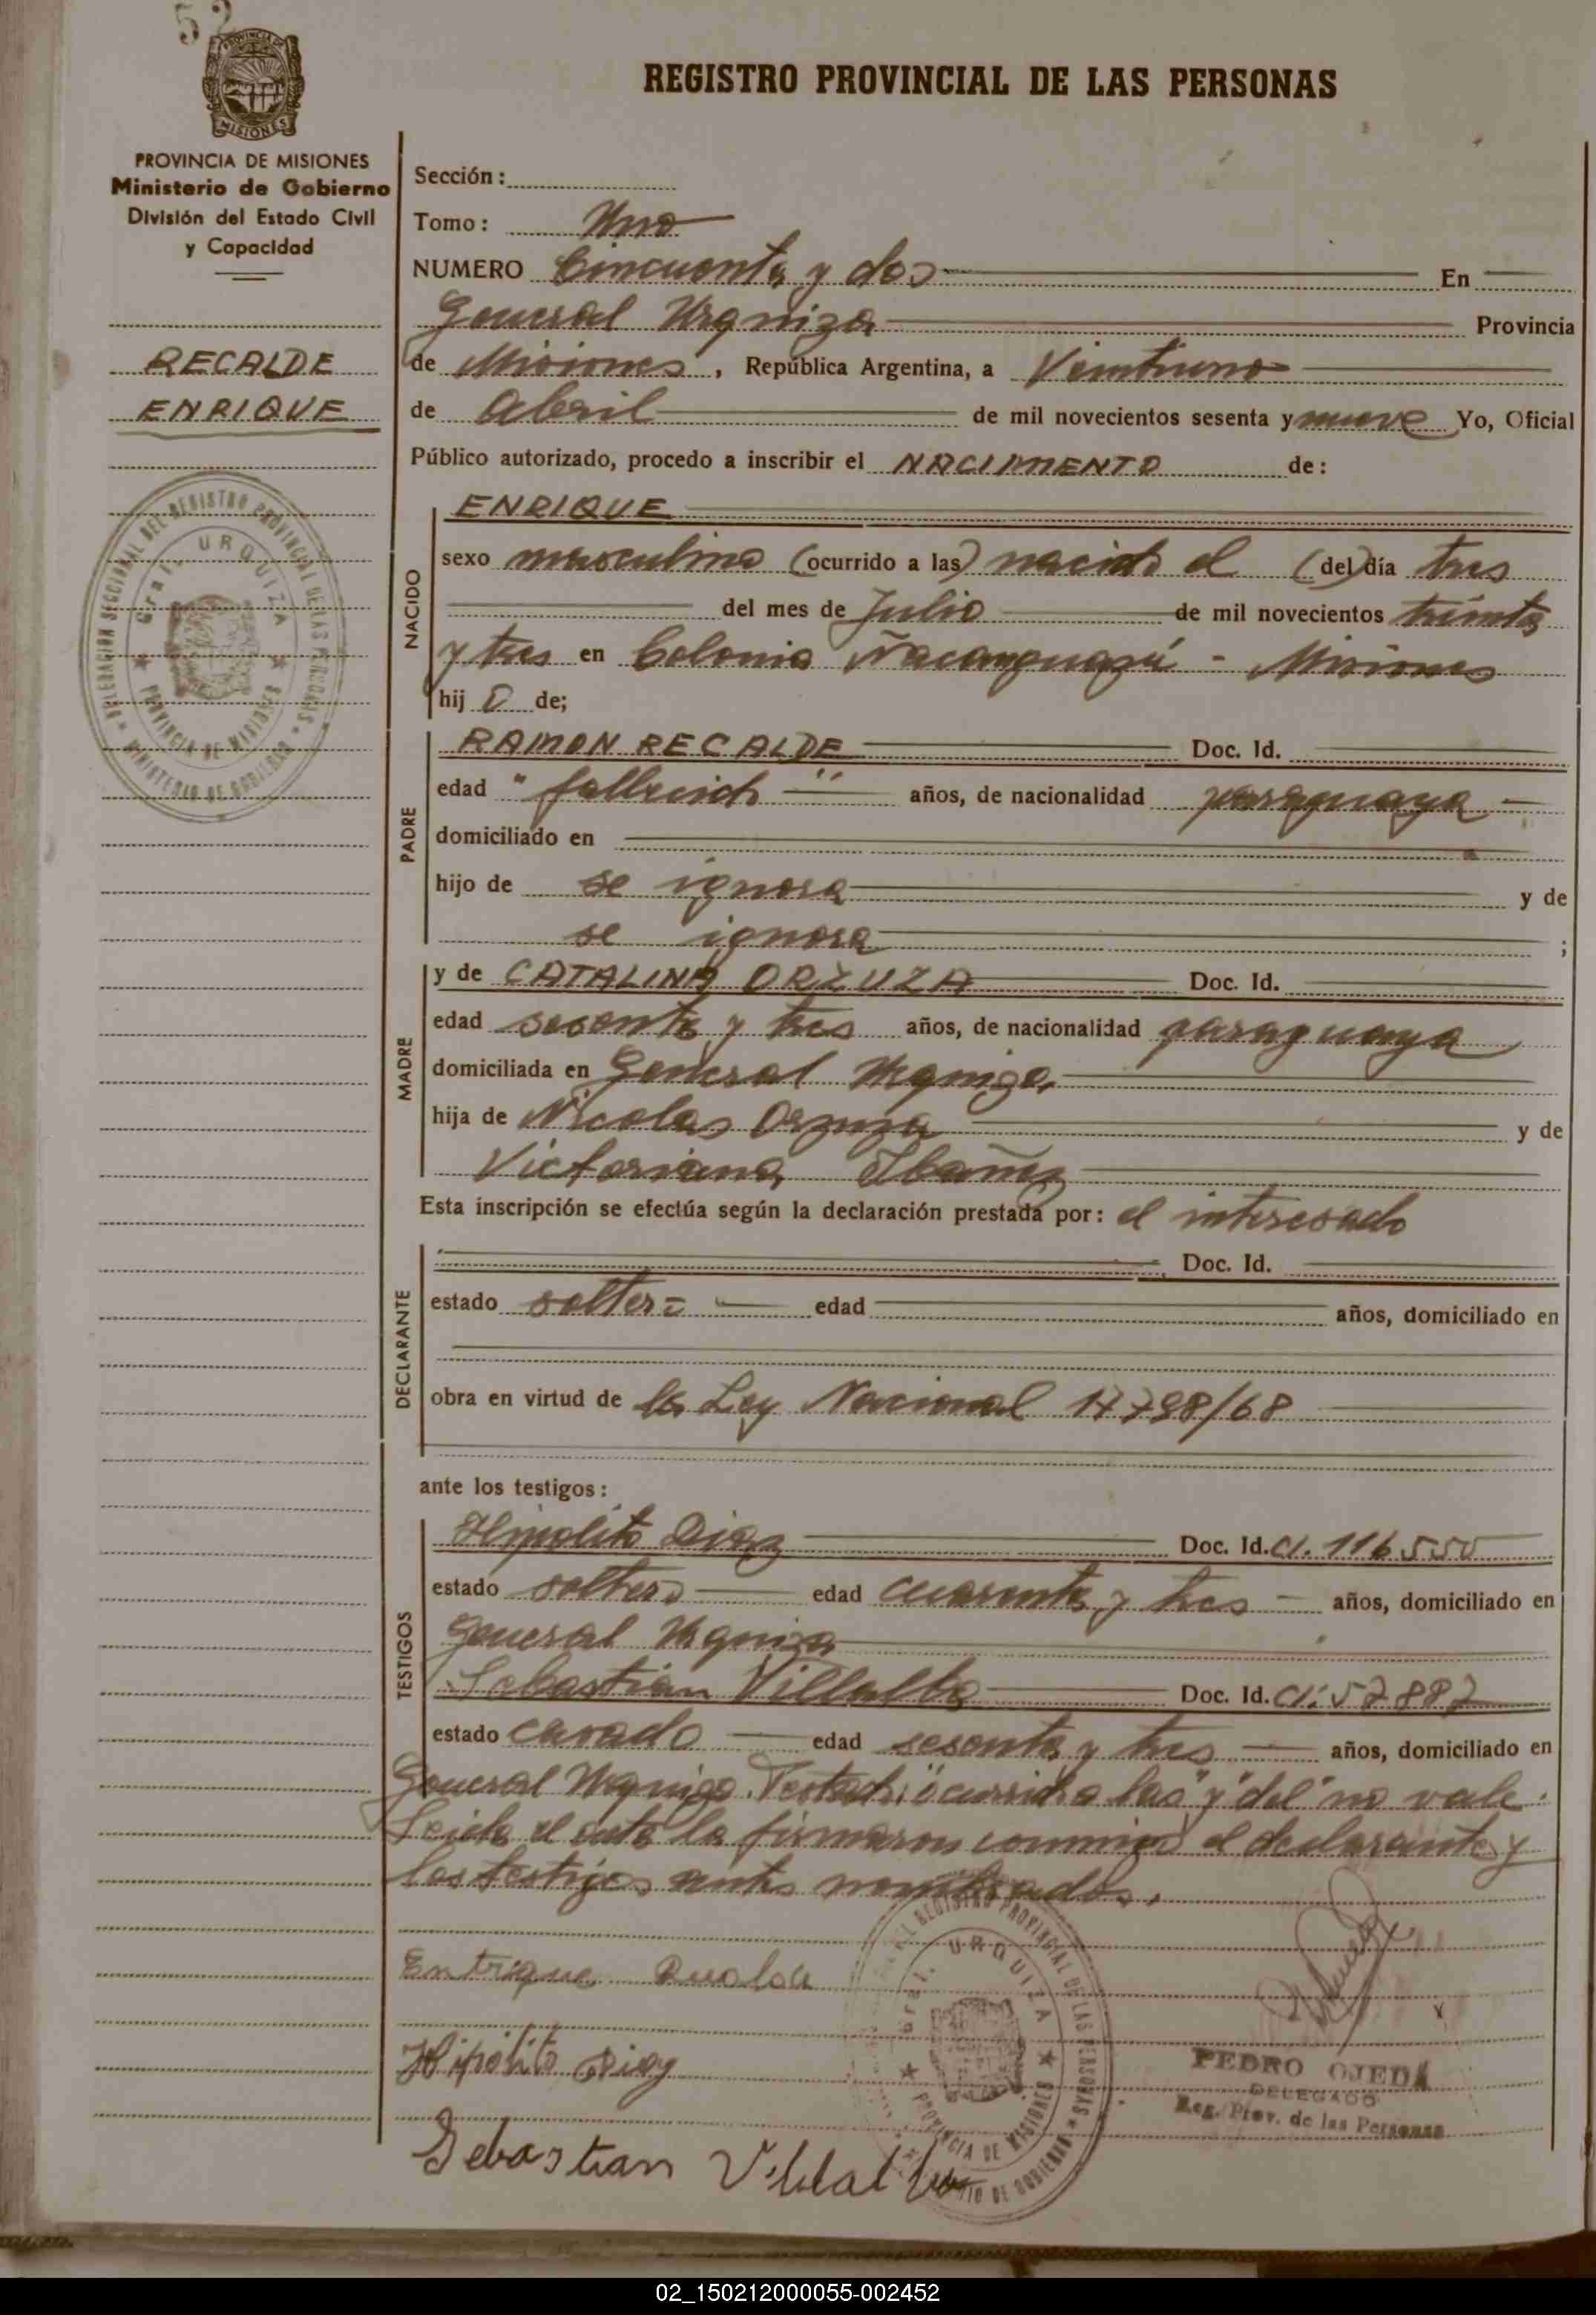 52
PROVINCIA DE
MISIONES
PROVINCIA DE MISIONES
Ministerio de Gobierno
División del Estado Civil
y Capacidad
RECALDE
ENRIQUE
DELEGACION SECCIONAL DEL REGISTRO PROVINCIAL DE LAS PERSONAS
MINISTERIO DE GOBIERNO
Gral. URQUIZA
PROVINCIA DE MISIONES
REGISTRO PROVINCIAL DE LAS PERSONAS
Sección:
Tomo: Uno
NUMERO Cincuenta y dos En
General Urquiza Provincia
de Misiones, República Argentina, a Veintiuno
de Abril de mil novecientos sesenta y nueve Yo, Oficial
Público autorizado, procedo a inscribir el NACIMIENTO de:
NACIDO
ENRIQUE
sexo masculino (ocurrido a las) nacido el (del) día tres
del mes de Julio de mil novecientos treinta
y tres en Colonia Ñacanguazú - Misiones
hij o de;
PADRE
RAMON RECALDE Doc. Id.
edad " fallecido " años, de nacionalidad paraguaya
domiciliado en
hijo de se ignora y de
se ignora ;
MADRE
y de CATALINA ORZUZA Doc. Id.
edad sesenta y tres años, de nacionalidad paraguaya
domiciliada en General Urquiza
hija de Nicolas Orzuza y de
Victoriana Ibañez
Esta inscripción se efectúa según la declaración prestada por: el interesado
DECLARANTE
Doc. Id.
estado soltero edad años, domiciliado en
obra en virtud de la Ley Nacional 17798/68
ante los testigos:
TESTIGOS
Hipolito Diaz Doc. Id. CI. 116.550
estado soltero edad cuarenta y tres años, domiciliado en
General Urquiza
Sebastian Villalba Doc. Id. CI. 57.887
estado casado edad sesenta y tres años, domiciliado en
General Urquiza. Testado: "ocurrido a las" y "del" no vale.
Leida el acta la firmaron conmigo el declarante y
los testigos antes nombrados.
Entrique
Hipolito Diaz
Sebastian Villalba
REGISTRO PROVINCIAL DE LAS PERSONAS
Gral. URQUIZA
PROVINCIA DE MISIONES
PEDRO OJEDA
DELEGADO
Reg. Prov. de las Personas
02_150212000055-002452